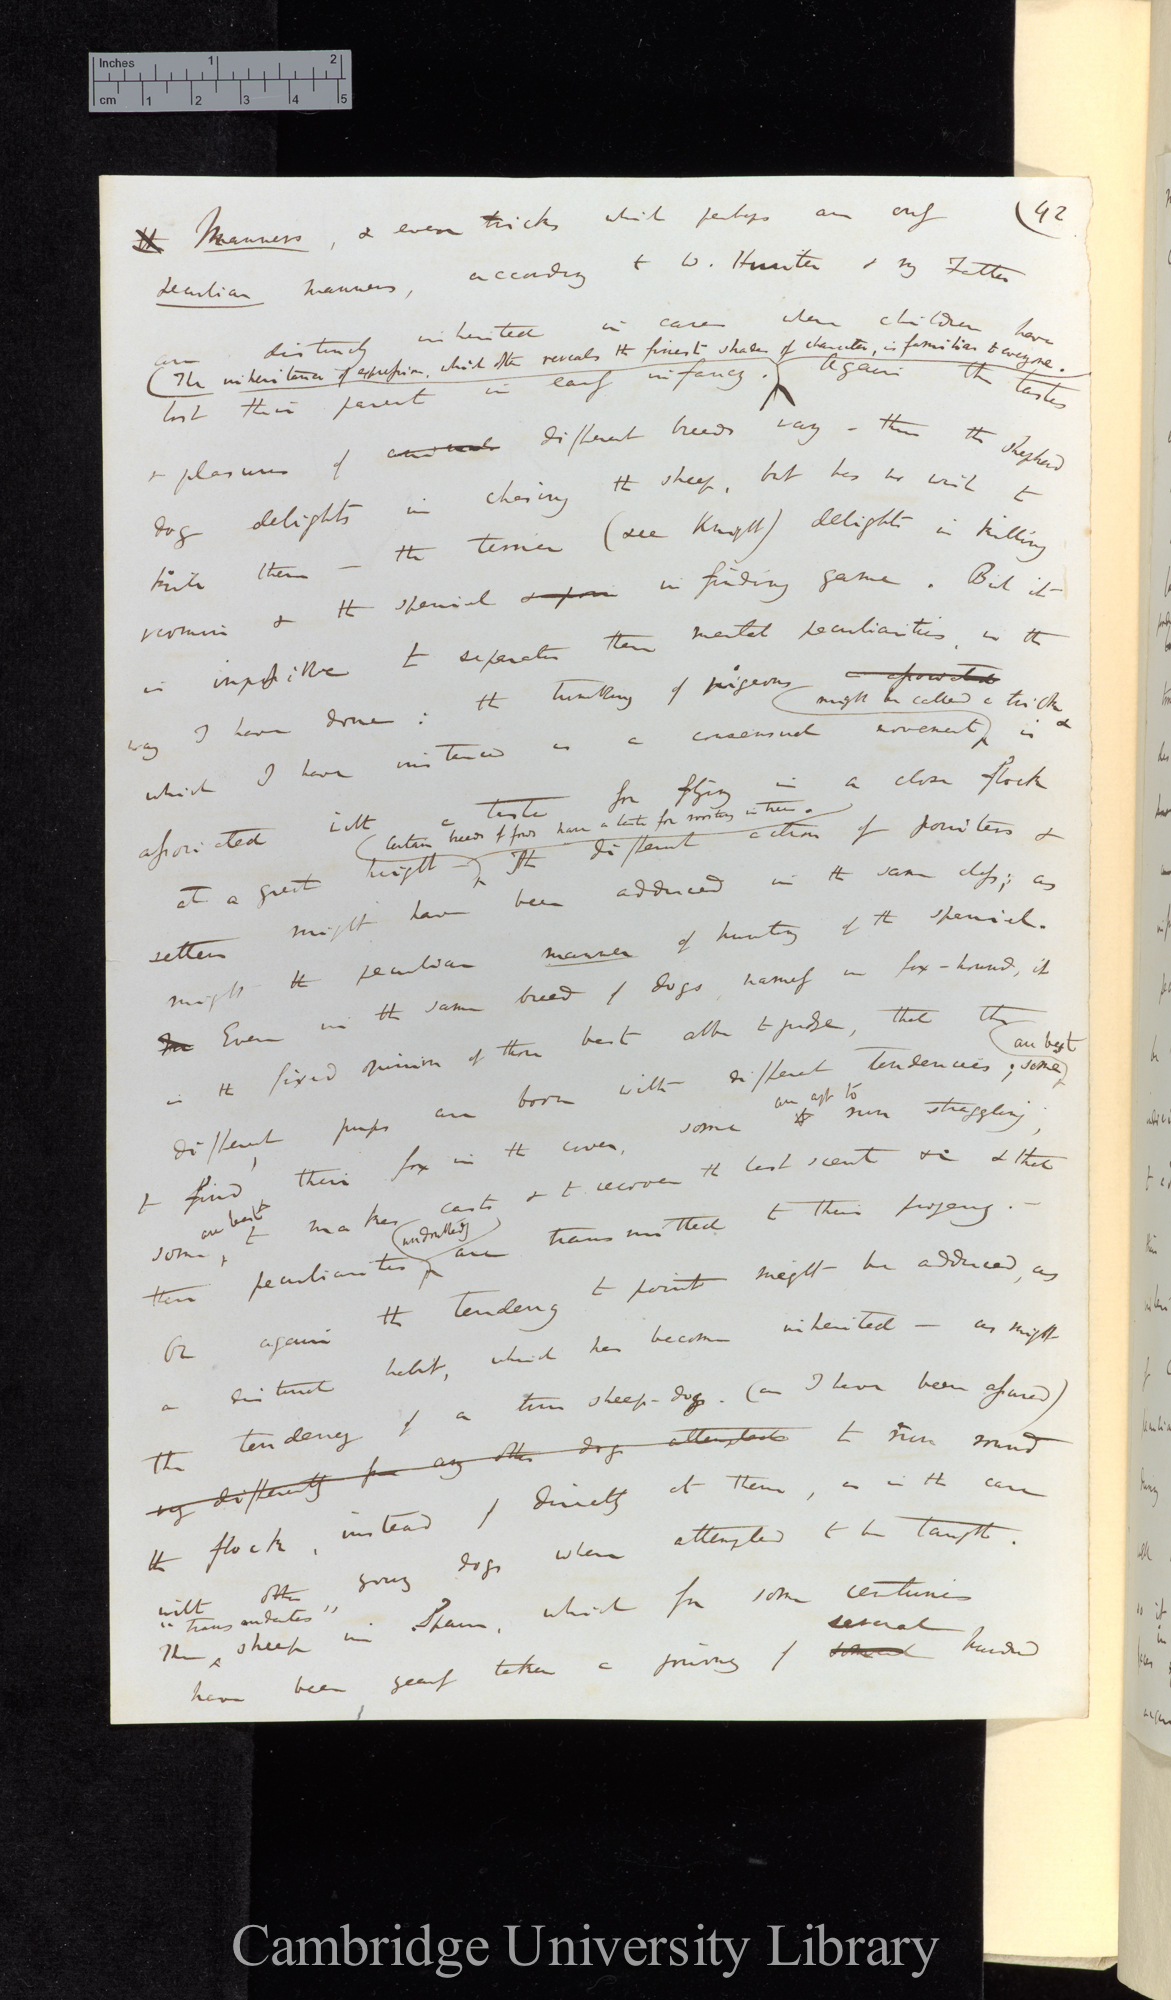 Inches 1 2
cm 1 2 3 4 5
(42
Manners, & even tricks which perhaps are only
peculiar manners, according to W. Hunter & my Father
are distinctly inherited in cases when children have
(The inheritance of expression, which often reveals the finest shades of character, is familiar to everyone.
lost their parent in early infancy. Again the tastes
& pleasures of animals different breeds vary – thus the shepherd
dog delights in chasing the sheep, but has no wish to
kill them – the terrier (see Knight) delights in killing
vermin & the spaniel in finding game. But it
is impossible to separate these mental peculiarities in the
way I have done: the tumbling of pigeons associated
might be called a trick &
which I have instanced as a consensual movement, is
associated with a taste for flying in a close flock
certain breeds of fowls have a taste for roosting in trees.
at a great height – The different actions of pointers &
setters might have been adduced in the same class; as
might the peculiar manner of hunting of the spaniel.
Even in the same breed of dogs, namely in fox-hounds, it
is the fixed opinion of those best able to judge, that the
are best
different pups are born with different tendencies; some
are apt to
to find their fox in the cover, some run straggling;
are best
some, to make casts & to recover the lost scent & that
undoubtedly
these peculiarities are transmitted to their progeny. –
Or again the tendency to point might be adduced, as
a distinct habit, which has become inherited – as might
the tendency of a true sheep-dog (as I have been assured)
differently from any other dog attempted to run round
the flock, instead of directly at them, as is the case
with other young dogs when attempted to be taught.
"transandantes"
The sheep in Spain, which for some centuries
several
have been yearly taken a journey of hundred
Cambridge University Library